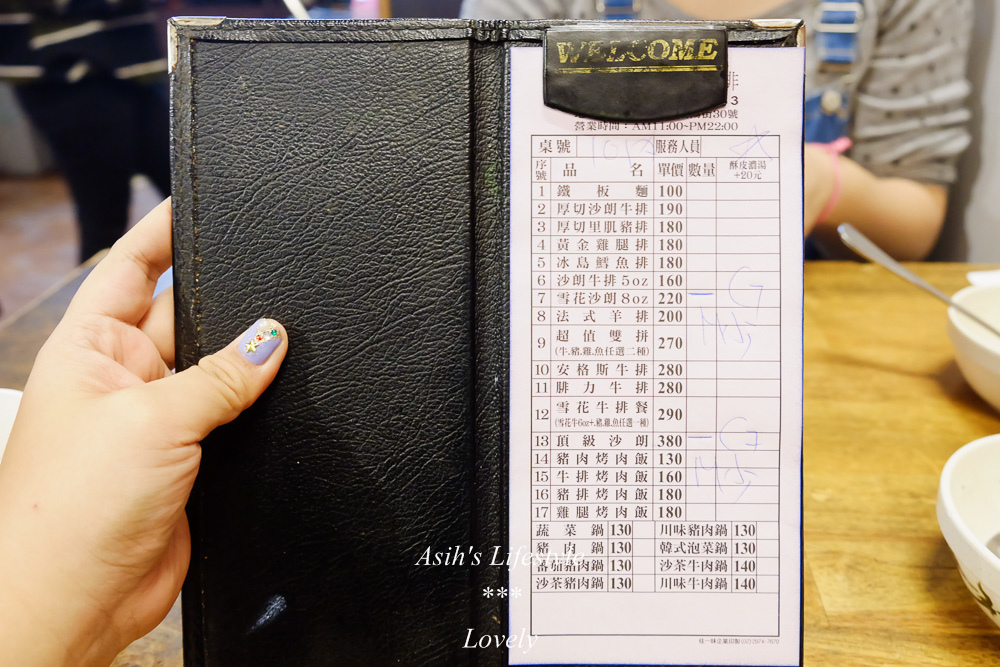 WELCOME
排
3
街30號
營業時間：AM11:00~PM22:00
桌號 服務人員
序號 品名 單價 數量 酥皮濃湯+20元
1 鐵板麵 100
2 厚切沙朗牛排 190
3 厚切里肌豬排 180
4 黃金雞腿排 180
5 冰島鱈魚排 180
6 沙朗牛排5oz 160
7 雪花沙朗8oz 220
8 法式羊排 200
9 超值雙拼 270
(牛.豬.雞.魚任選二種)
10 安格斯牛排 280
11 腓力牛排 280
12 雪花牛排餐 290
(雪花牛6oz+.豬.雞.魚任選一種)
13 頂級沙朗 380
14 豬肉烤肉飯 130
15 牛排烤肉飯 160
16 豬排烤肉飯 180
17 雞腿烤肉飯 180
蔬菜鍋 130 川味豬肉鍋 130
豬肉鍋 130 韓式泡菜鍋 130
番茄豬肉鍋 130 沙茶牛肉鍋 140
沙茶豬肉鍋 130 川味牛肉鍋 140
Asih's Lifestyle
***
Lovely